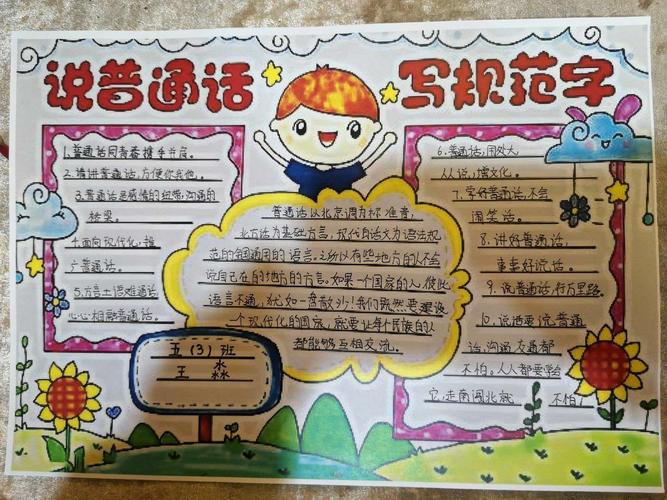 说普通话
写规范字
1.普通话同青春携手并肩。
2.请讲普通话,方便你我他。
3.普通话是感情的纽带,沟通的
桥梁。
4.面向现代化,推
广普通话。
5.方言土语难通话
心心相融普通话。
普通话以北京调为标准音,
北方话为基础方言,现代白话文为语法规
范的全国通用的语言。
说自己在的地方的方言。如果一个国家的人,彼此
语言不通,犹如一盘散沙!我们既然要建设
一个现代化的国家,就要让每个民族的人
都能够互相交流。
五(3)班
王淼
6.普通话,用处大
人人说,增文化。
7.学好普通话,不会
闹笑话。
8.讲好普通话,
事事好说话。
9.说普通话,行万里路。
10.说话要说普通
话,沟通交通都
不怕。人人都要学会
它,走南闯北就不怕!